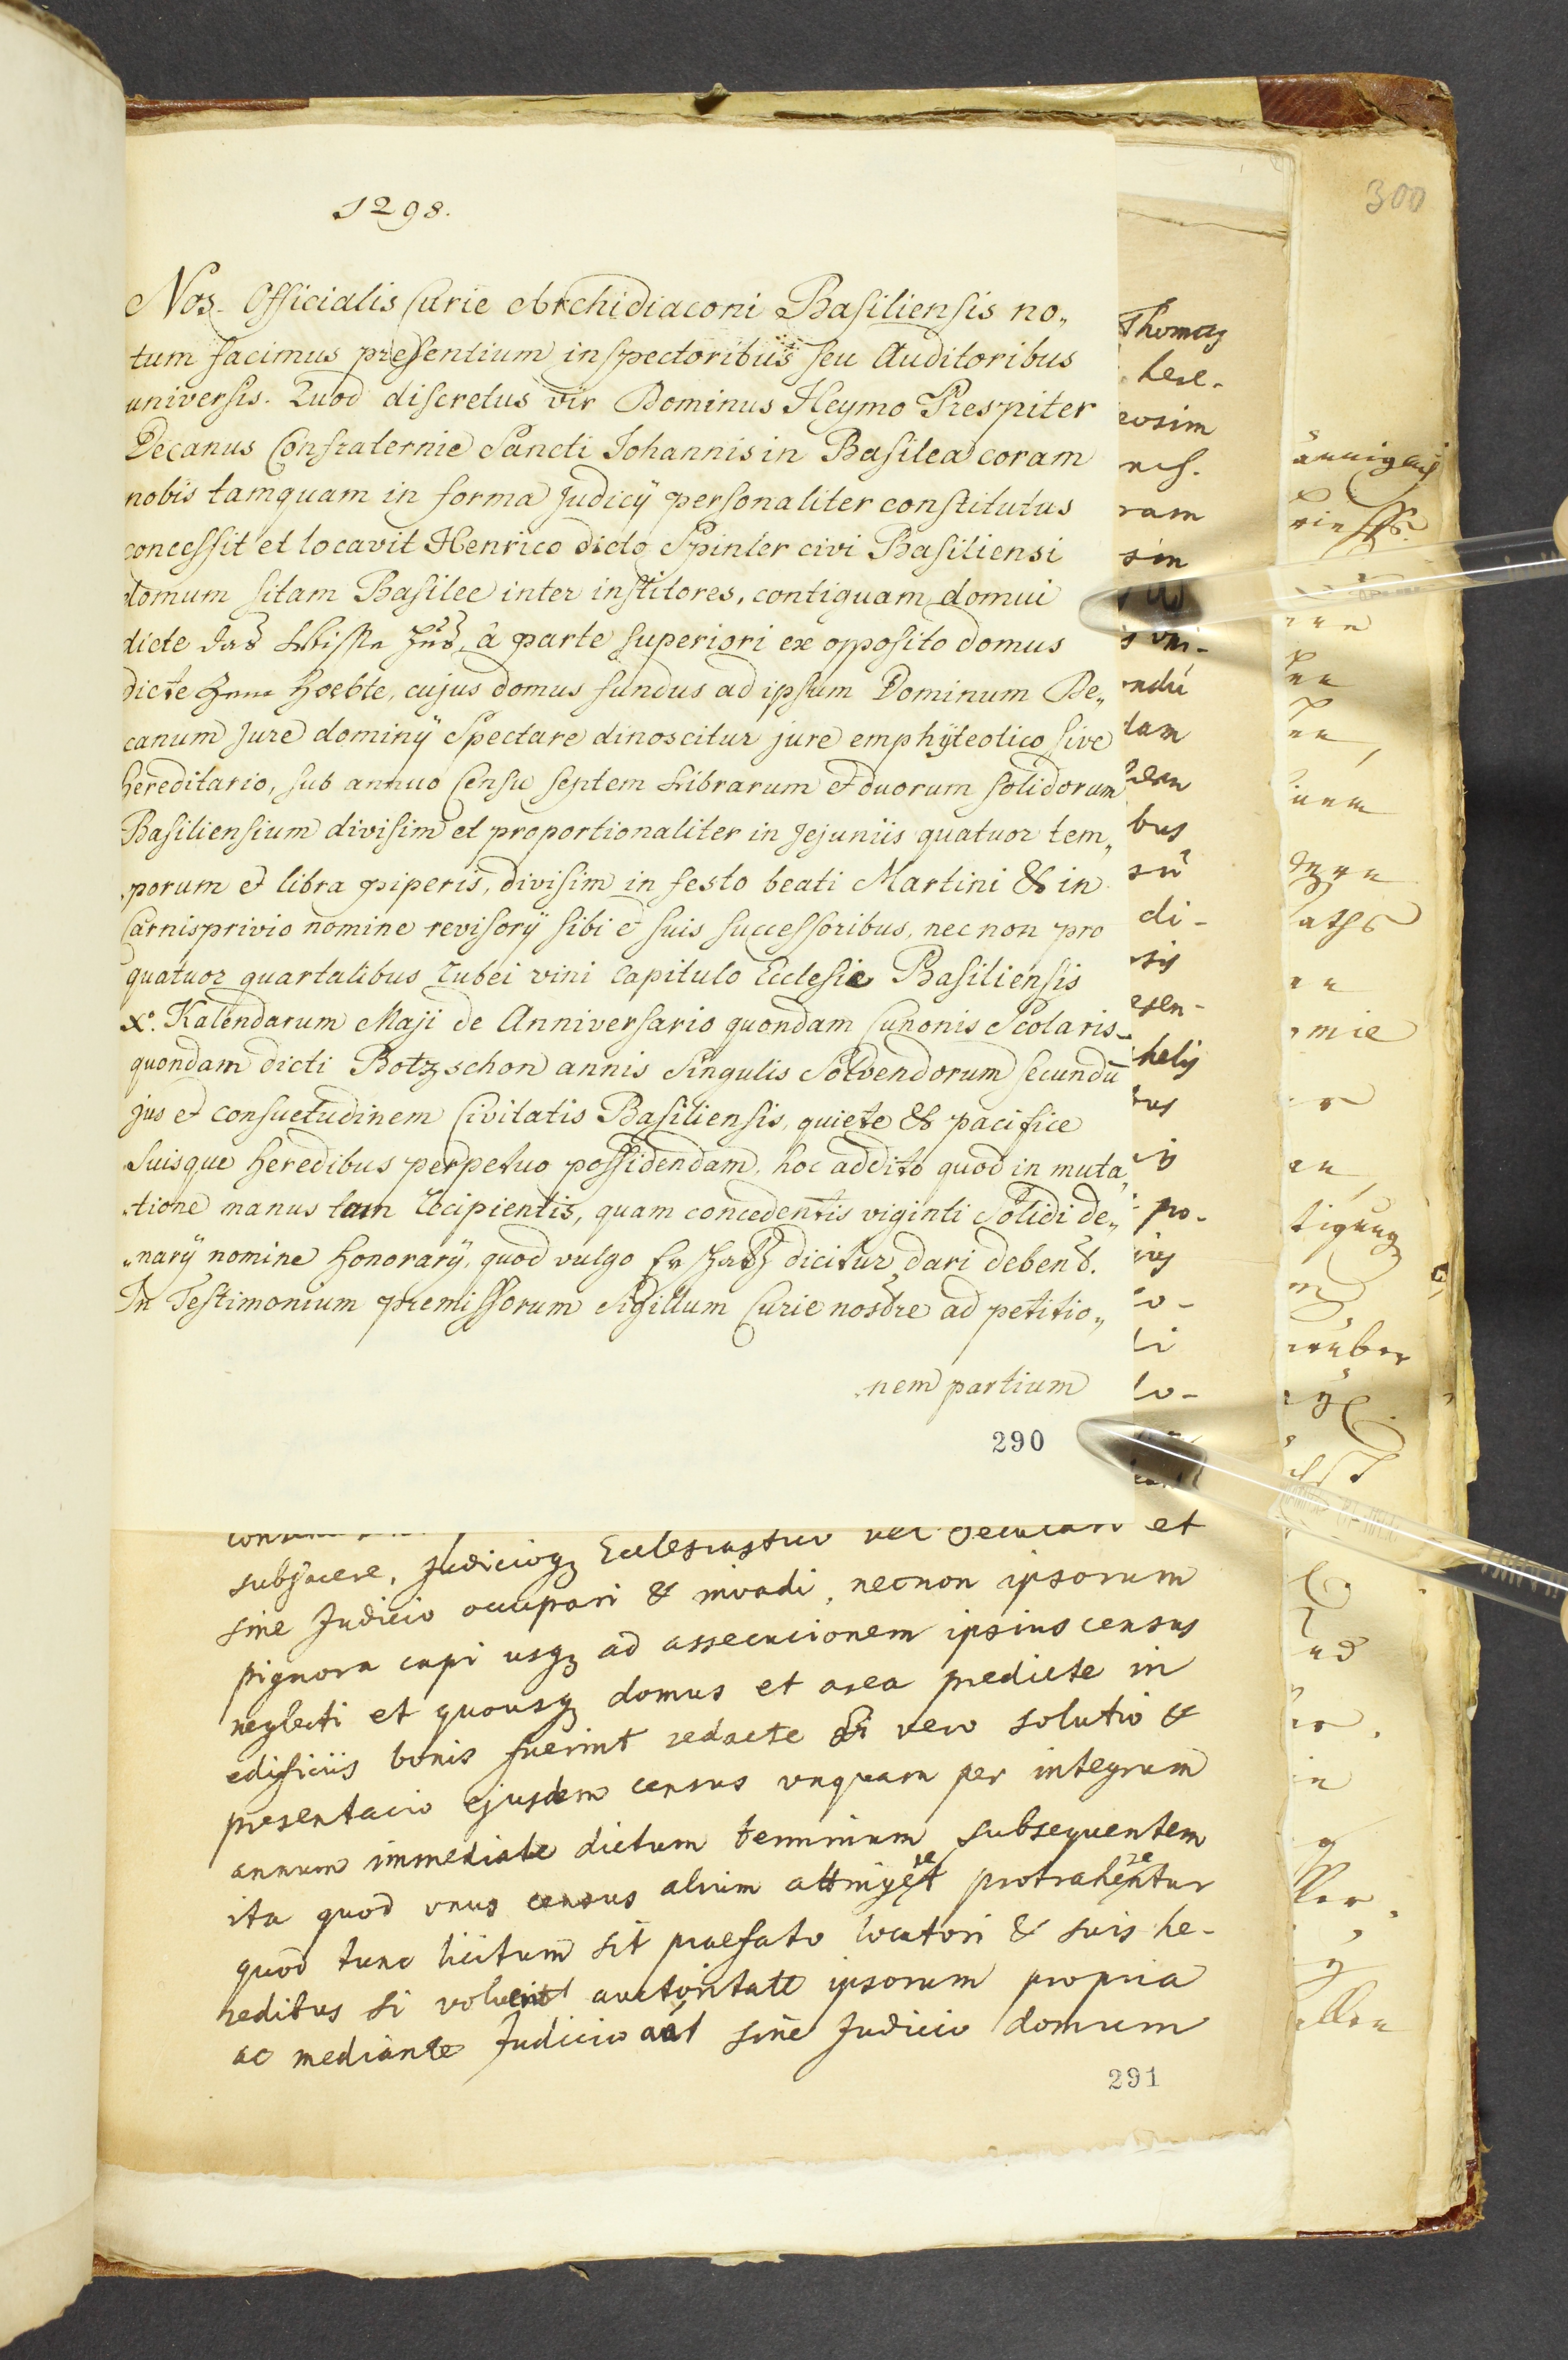 300
1298.
Nos Officialis Curie Archidiaconi Basiliensis no„
tum facimus presentium inspectoribus seu Auditoribus
universis. Quod discretus vir Dominus Heymo Prespiter
Decanus Confraternie Sancti Johannis in Basilea coram
nobis tamquam in forma Judicÿ personaliter constitutus
concessit et locavit Henrico dicto Spinler civi Basiliensi
domum sitam Basilee inter institores, contiguam domui
dicte das Wisse Huß, à parte superiori ex opposito domus
dicte Zum Hoebte, cujus domus fundus ad ipsum Dominum De„
canum Jure dominÿ Spectare dinoscitur jure emphÿteotico sive
hereditario, sub annuo Censu septem Librarum et duorum solidorum
Basiliensium divisim et proportionaliter in Jejuniis quatuor tem„
porum et libra piperis, divisim in festo beati Martini & in
Carnisprivio nomine revisorÿ sibi et suis successoribus, nec non pro
quatuor quartalibus rubei vini Capitulo Ecclesie Basiliensis
X°. Kalendarum Maji de Anniversario quondam Cunonis Scolaris
quondam dicti Botzschon annis Singulis Solvendorum secundū
jus et consuetudinem Civitatis Basiliensis, quiete & pacifice
Suisque heredibus perpetuo possidendam, hoc addito quod in muta„
tione manus tam recipientis, quam concedentis viginti Solidi de„
„narÿ nomine honorarÿ, quod vulgo Erschatz dicitur dari debent.
In Testimonium premissorum Sigillum Curie nostre ad petitio„
nem partium
290
subjacere, Judicioqz Ecclesiastico vel Seculari et
sine Judicio occupari & invadi, necnon ipsorum
pignora capi usqz ad assecucionem ipsius census
neglecti et quousqz domus et area predicte in
edificiis bonis fuerint redacte Si vero solutio &
presentacio ejusdem census unquam per integrum
annum immediate dictum terminum subsequentem
ita quod unus census alium attinget protrahentur
quod tunc licitum sit praefato locatori & suis he-
redibus si voluerit auctoritate ipsorum propria
ac mediante Judicio aut sine Judicio domum
291
Thomas
here-
ram
sin
dam
bus
di-
helÿ
po-
lo-
mie
tigung